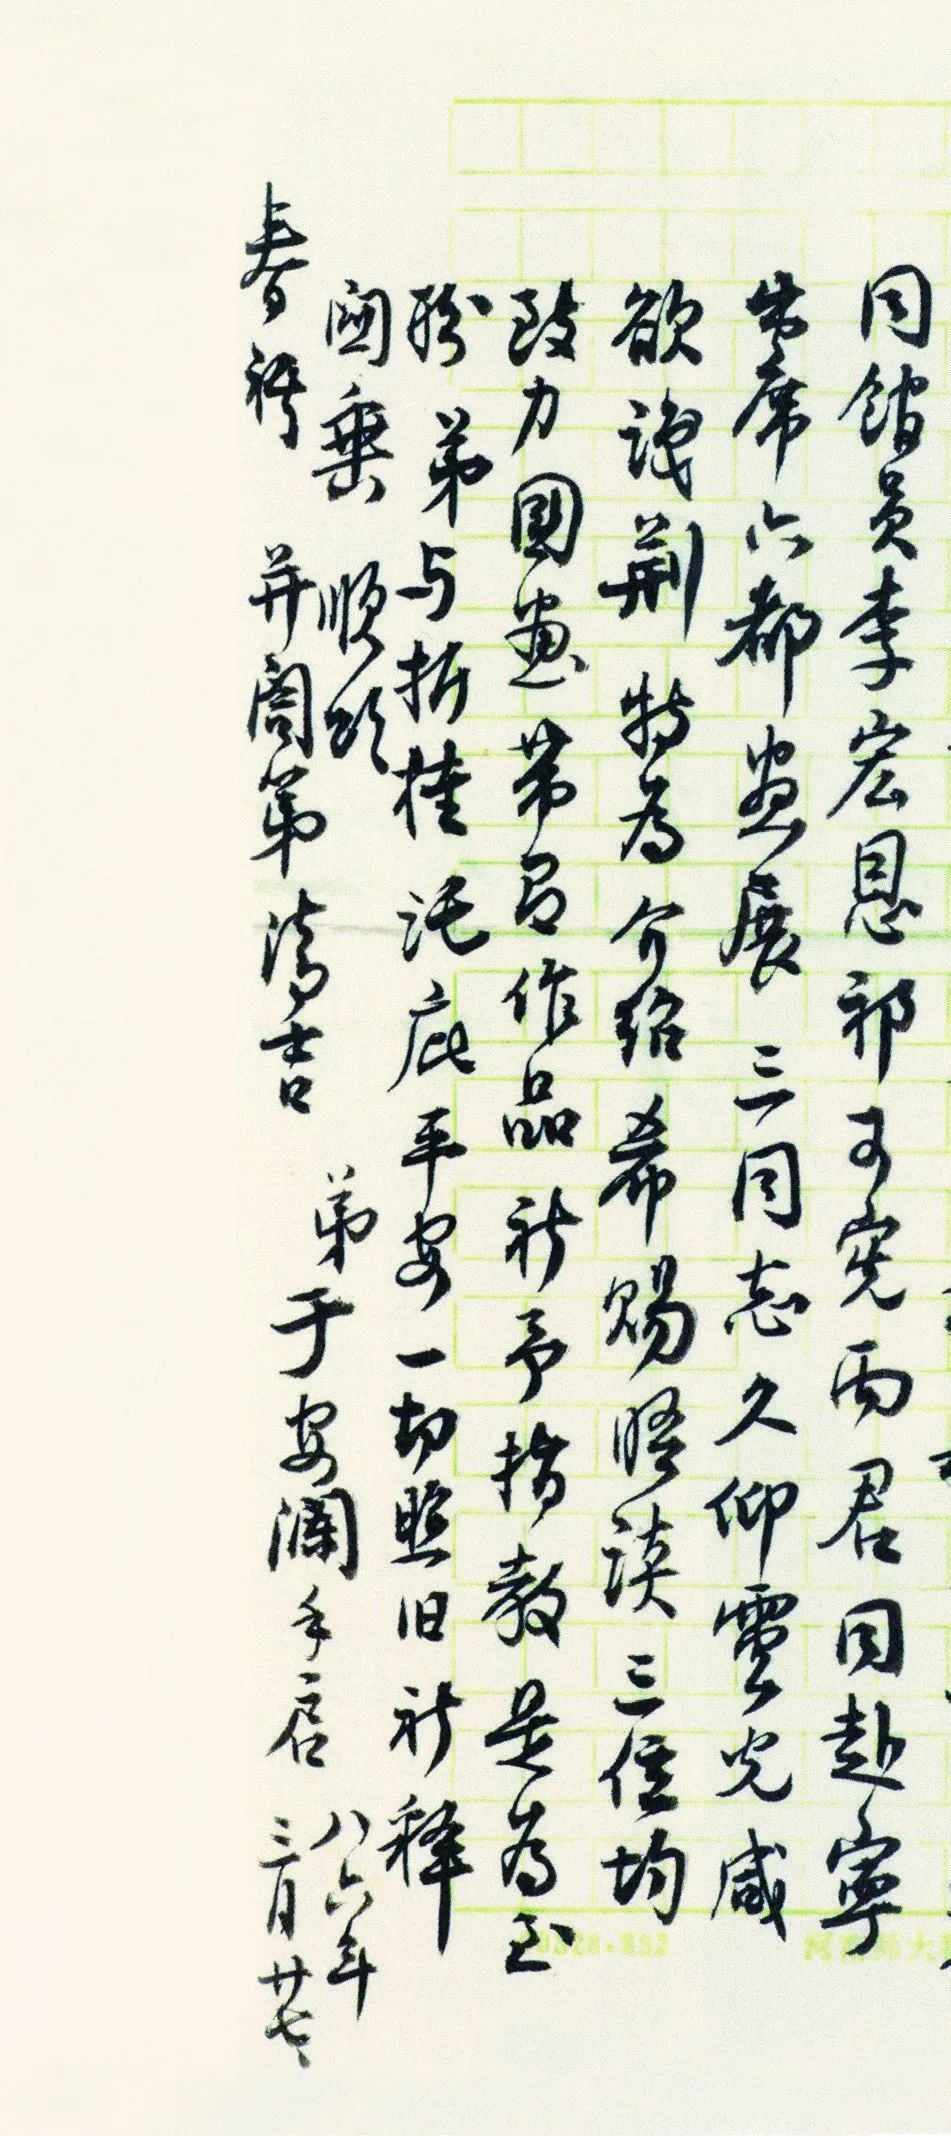 同馆员李宏恩祁可宪两君同赴宁
出席六都画展 三同志久仰云光咸
欲识荆 特为介绍希赐晤谈 三位均
致力国画带有作品祈予指教是为至
盼 弟与折桂托庇平安一切照旧祈释
阃乘 顺颂
春祺 并阁第清吉
弟于安澜手启
八六年
三月廿七